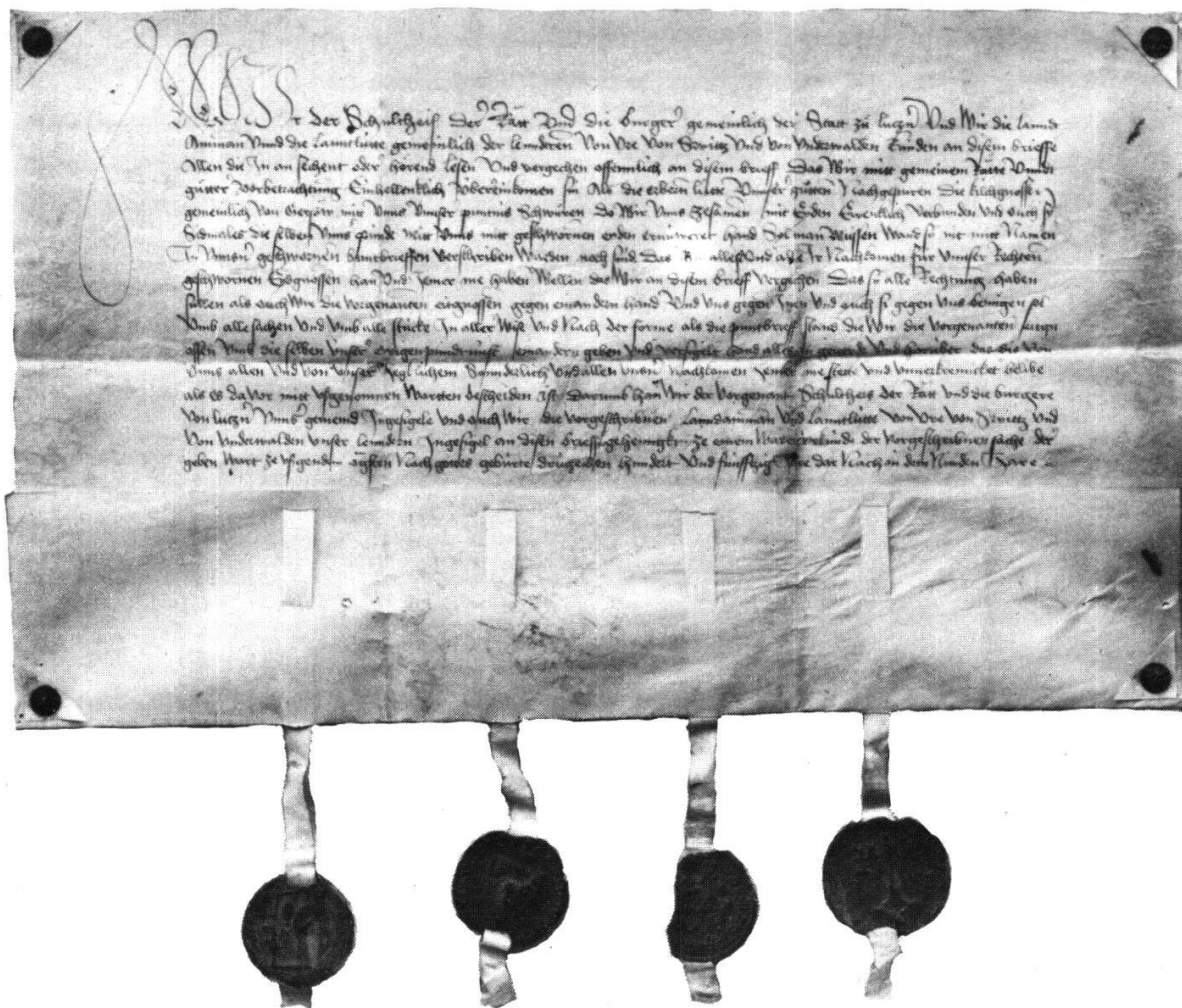 Wir der Schultheis der Rätt Vnd die burger gemeinlich der Statt zu lucern Vnd Wir die lannd
Amman Vnnd die Lanntlütte gemeinlich der lenndren Von Vre von Switz Vnd von Vnderwalden künden an disem brieffe
Allen die In an sechent oder hörend lesen Vnd vergechen offennlich an disem brieff Das Wir mitt gemeinem Rätte Vnnd
gůtter Vorbetrachtung Einhellenklich Vberein komen sin Als die erbern lütte Vnnser gůtten Nachgepuren die kilchgnosser
gemeinlich von Gersow mit Vnns Vnnser puntnis Schwůren do Wir Vnns Zesamen mit Eyden Ewenklich Verbunden Vnd ouch sy
Sidmales die selben Vnns pünde mitt Vnns mitt geschwornen eyden ernüweret hand Sol man wissen Wand sy nit mitt Namen
In Vnnsern geschwornen buntbrieffen Verschriben Warden noch sind Das alles Vnd alle Ir Nachkomen für Vnnser Rechten
geschwornen Eidgnossen han Vnd yemer me haben Wellen das Wir an disem brieff Vergechen Das sy alle Rechtung haben
sullen als ouch Wir die Vorgenanten eidgnossen gegen einandern hand Vnd Vns gegen Inen Vnd ouch sy gegen Vns benügen sol
Vmb alle sachen Vnd Vmb alle stücke In aller Wise Vnd Nach der forme als die puntbrief stand die Wir die Vorgenanten Eidgn
ossen Vmb die selben Vnser ewigen puntnüsse einandern geben Vnd Versigelt hand alles
Vnns allen Vnd von Vnser yeglichem Sunderlich Vnd allen Vnsern Nachkomen yemer me stett Vnd Vnuerkrencket belibe
als es da vor mitt Vsgenomen Wortten bescheiden ist Darumb han Wir der Vorgenant Schultheis der Rätt Vnd die burgere
von lucern Vnns gemeind Ingesigele Vnd ouch Wir die Vorgeschribnen Lanndamman Vnd Lanntlütte Von Vre von Switz Vnd
Von Vnderwalden Vnser lenndern Ingesigel an disen brieff gehennigket ze einem Waren Vrkünde der Vorgeschribnen sache der
geben Wart ze vsgendem ougsten Nach gottes gebürte drüzechen hundert Vnd fünffzig Jare dar Nach in dem Nünden Jare